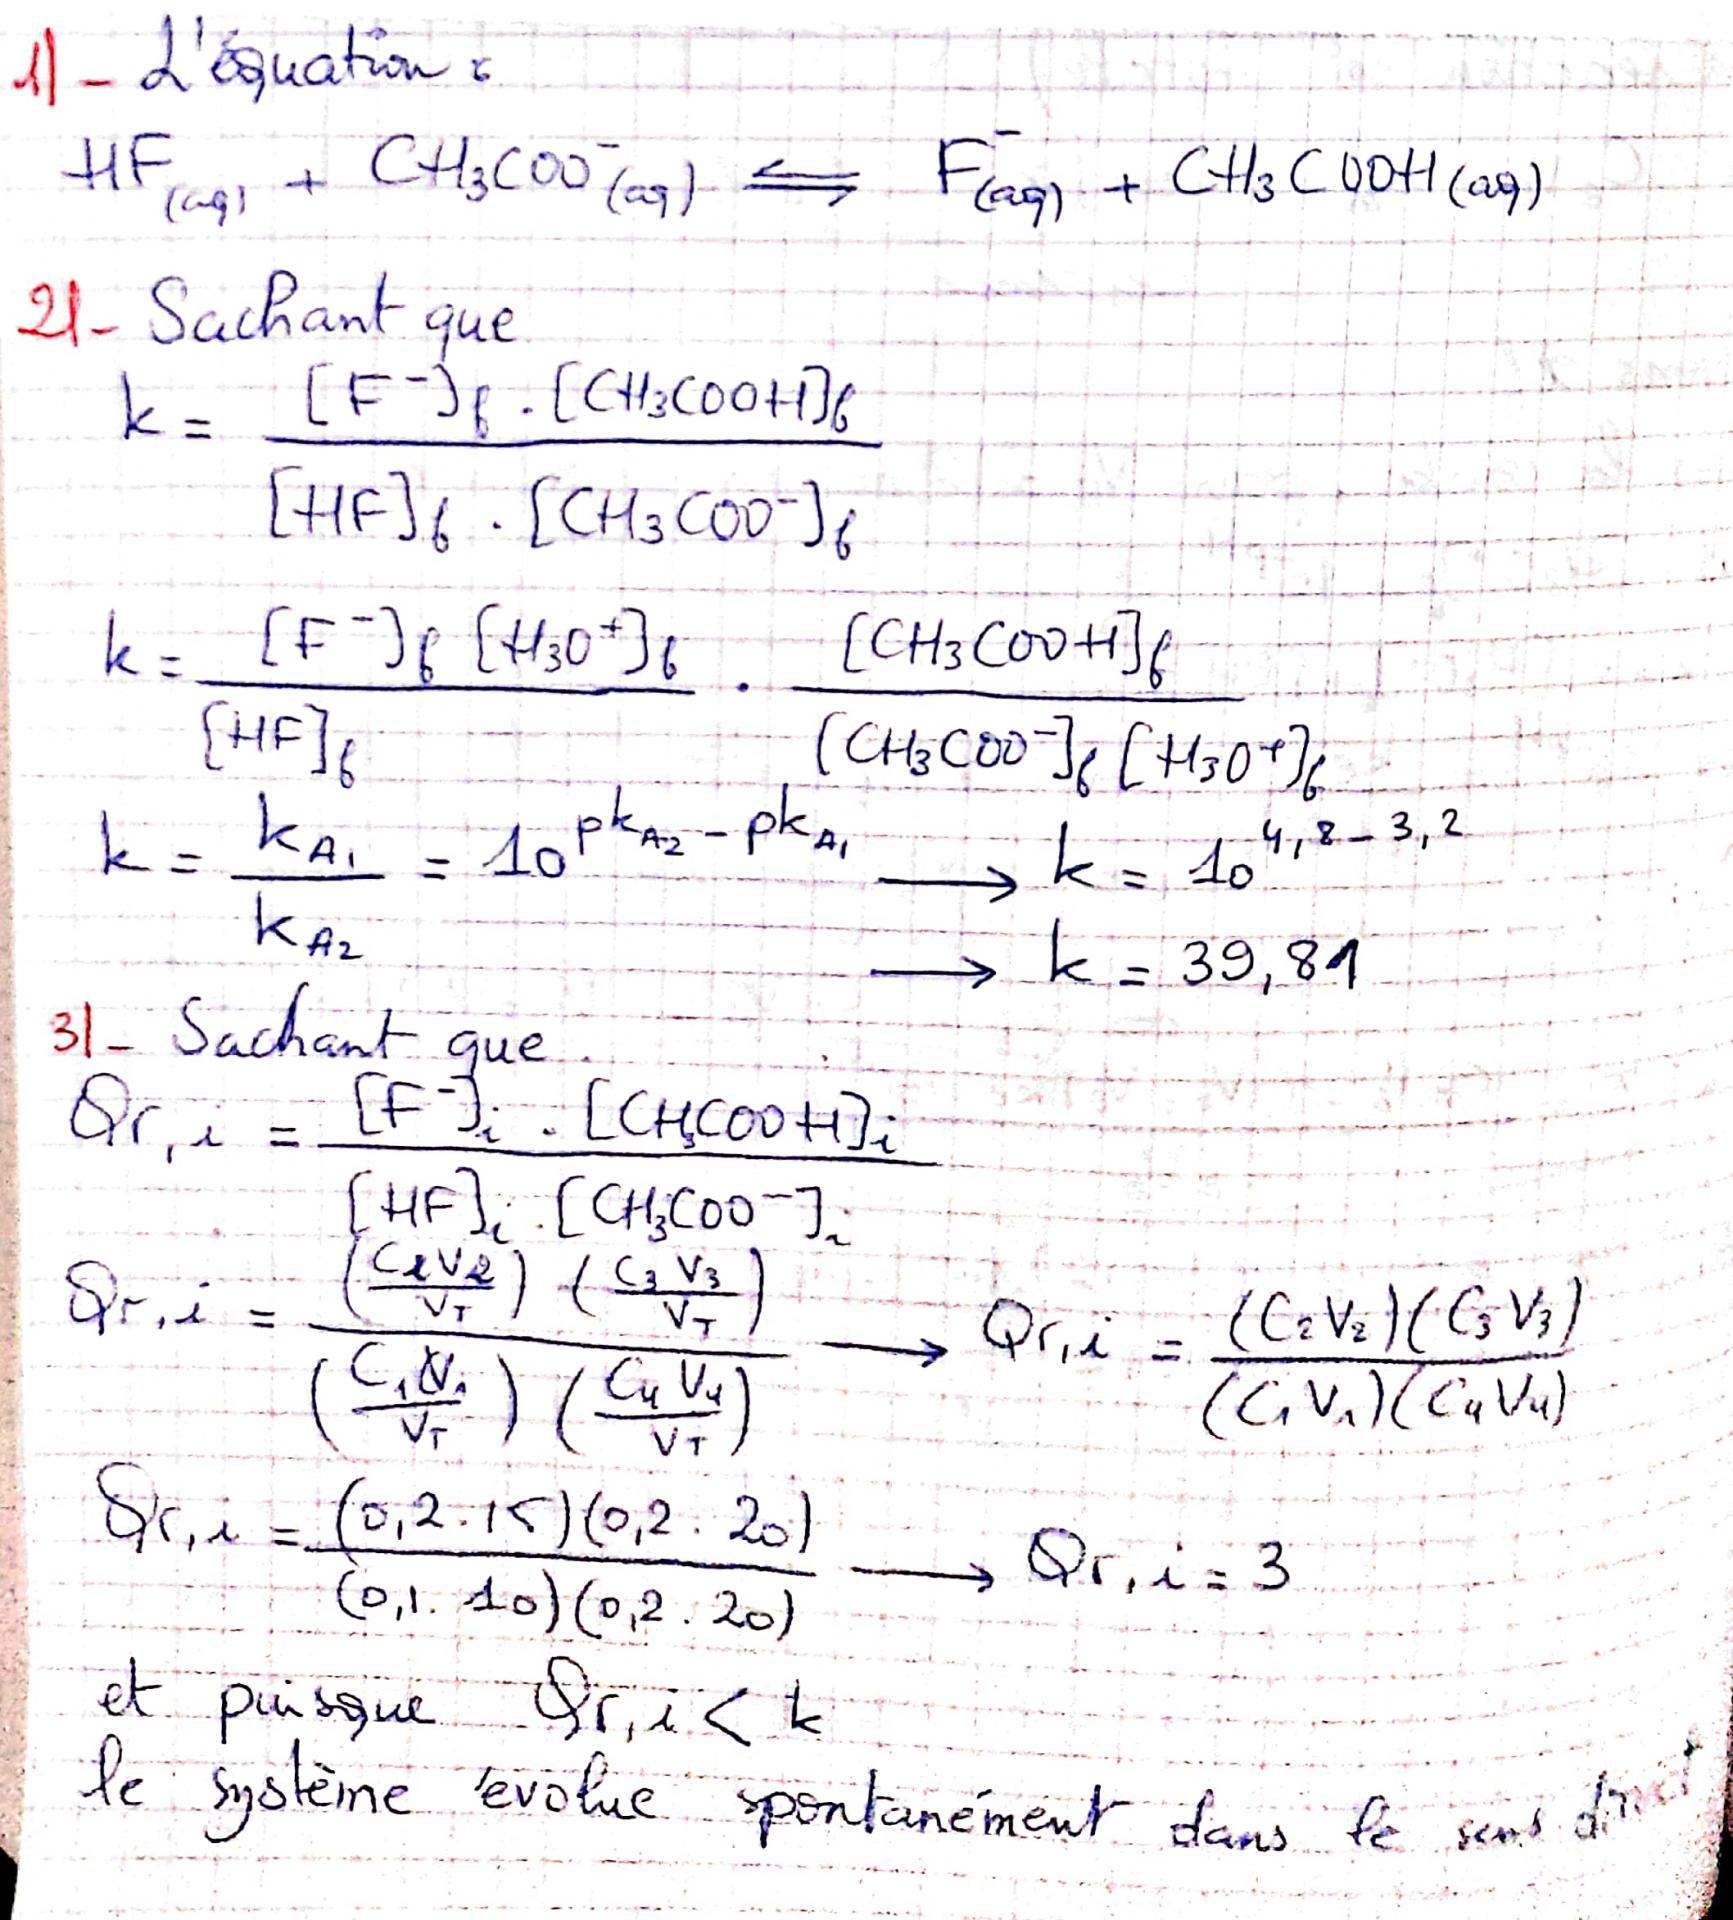 1)- L'équation :
HF(aq) + CH₃COO⁻(aq) ⇌ F⁻(aq) + CH₃COOH(aq)
2)- Sachant que
k = [F⁻]f . [CH₃COOH]f / [HF]f . [CH₃COO⁻]f
k = [F⁻]f [H₃O⁺]f / [HF]f . [CH₃COOH]f / [CH₃COO⁻]f [H₃O⁺]f
k = kA₁ / kA₂ = 10^(pkA₂ - pkA₁) → k = 10^(4,8-3,2)
→ k = 39,81
3)- Sachant que
Qr,i = [F⁻]i . [CH₃COOH]i / [HF]i . [CH₃COO⁻]i
Qr,i = (C₂V₂/VT) (C₃V₃/VT) / (C₁V₁/VT) (C₄V₄/VT) → Qr,i = (C₂V₂)(C₃V₃) / (C₁V₁)(C₄V₄)
Qr,i = (0,2.15)(0,2.20) / (0,1.10)(0,2.20) → Qr,i = 3
et puisque Qr,i < k
le système évolue spontanément dans le sens direct